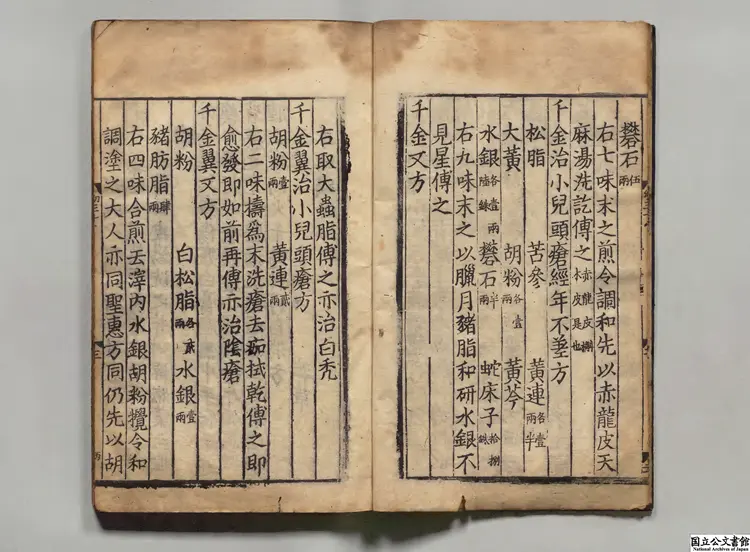 礬石伍兩
右七味末之煎令調和先以赤龍皮天
麻湯洗訖傅之赤龍皮槲木皮是也
千金治小兒頭瘡經年不差方
松脂 苦參 黃連各壹兩半
大黃 胡粉各壹兩 黃芩
水銀各壹兩陸銖 礬石半兩 蛇床子拾捌銖
右九味末之以臘月豬脂和研水銀不
見星傅之
千金又方
右取大蟲脂傅之亦治白秃
千金翼治小兒頭瘡方
胡粉壹兩 黃連貳兩
右二味擣爲末洗瘡去痂拭乾傅之即
愈發即如前再傅亦治陰瘡
千金翼又方
胡粉 白松脂各貳兩 水銀壹兩
豬肪脂肆兩
右四味合煎去滓内水銀胡粉攪令和
調塗之大人亦同聖惠方同仍先以胡
国立公文書館
National Archives of Japan